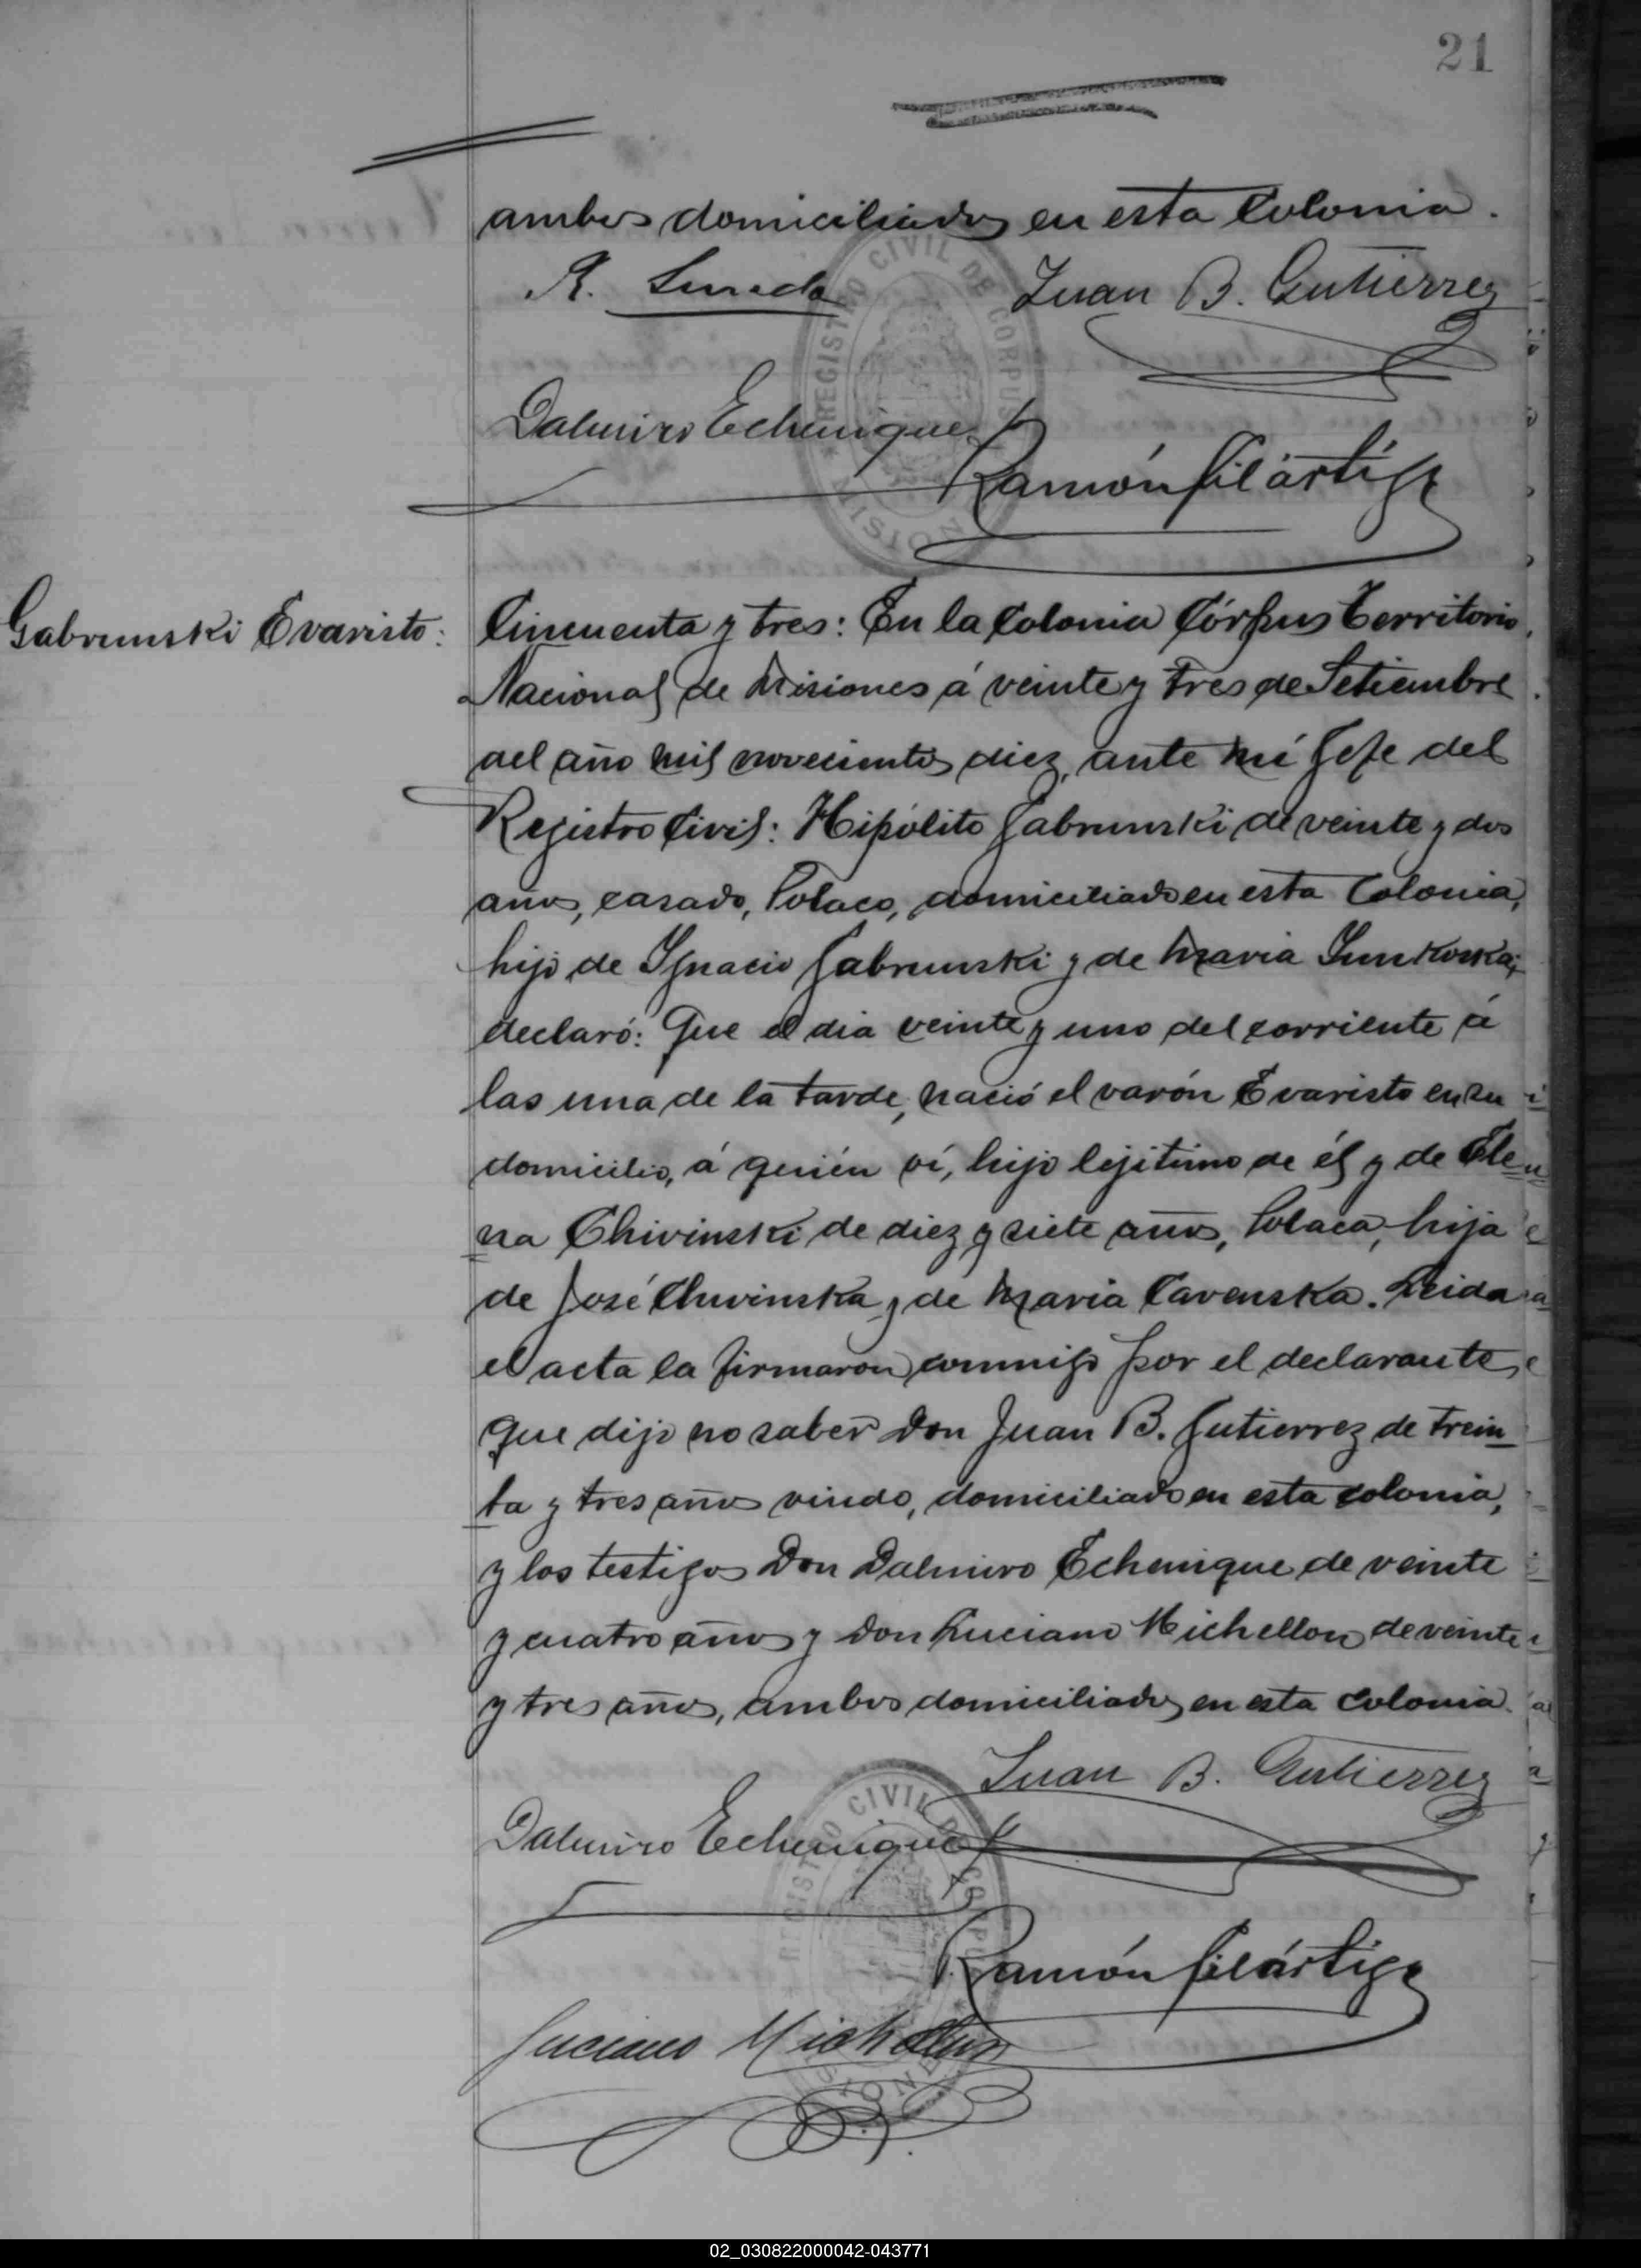 21
ambos domiciliados en esta Colonia.
Juan B. Gutierrez
Dalmiro Echenique
Ramón Filártiga
REGISTRO CIVIL DE CORPUS
MISIONES
Gabrunski Evaristo:
Cincuenta y tres: En la Colonia Córpus Territorio
Nacional de Misiones á veinte y tres de Setiembre
del año mil novecientos diez, ante mí Jefe del
Registro Civil: Hipólito Gabrunski de veinte y dos
años, casado, Polaco, domiciliado en esta Colonia,
hijo de Ignacio Gabrunski y de Maria
declaró: Que el dia veinte y uno del corriente á
las una de la tarde, nació el varón Evaristo en su
domicilio, á quién ví, hijo lejitimo de él y de Ele
na Chivinski de diez y siete años, Polaca, hija
de José Chivinska y de Maria Cavenska. Leida
el acta la firmaron conmigo por el declarante
que dijo no saber Don Juan B. Gutierrez de trein
ta y tres años viudo, domiciliado en esta colonia,
y los testigos Don Dalmiro Echenique de veinte
y cuatro años y Don Luciano Michellon de veinte
y tres años, ambos domiciliados en esta colonia.
Juan B. Gutierrez
Dalmiro Echenique
Ramón Filártiga
Luciano Michellon
REGISTRO CIVIL DE CORPUS
MISIONES
02_030822000042-043771